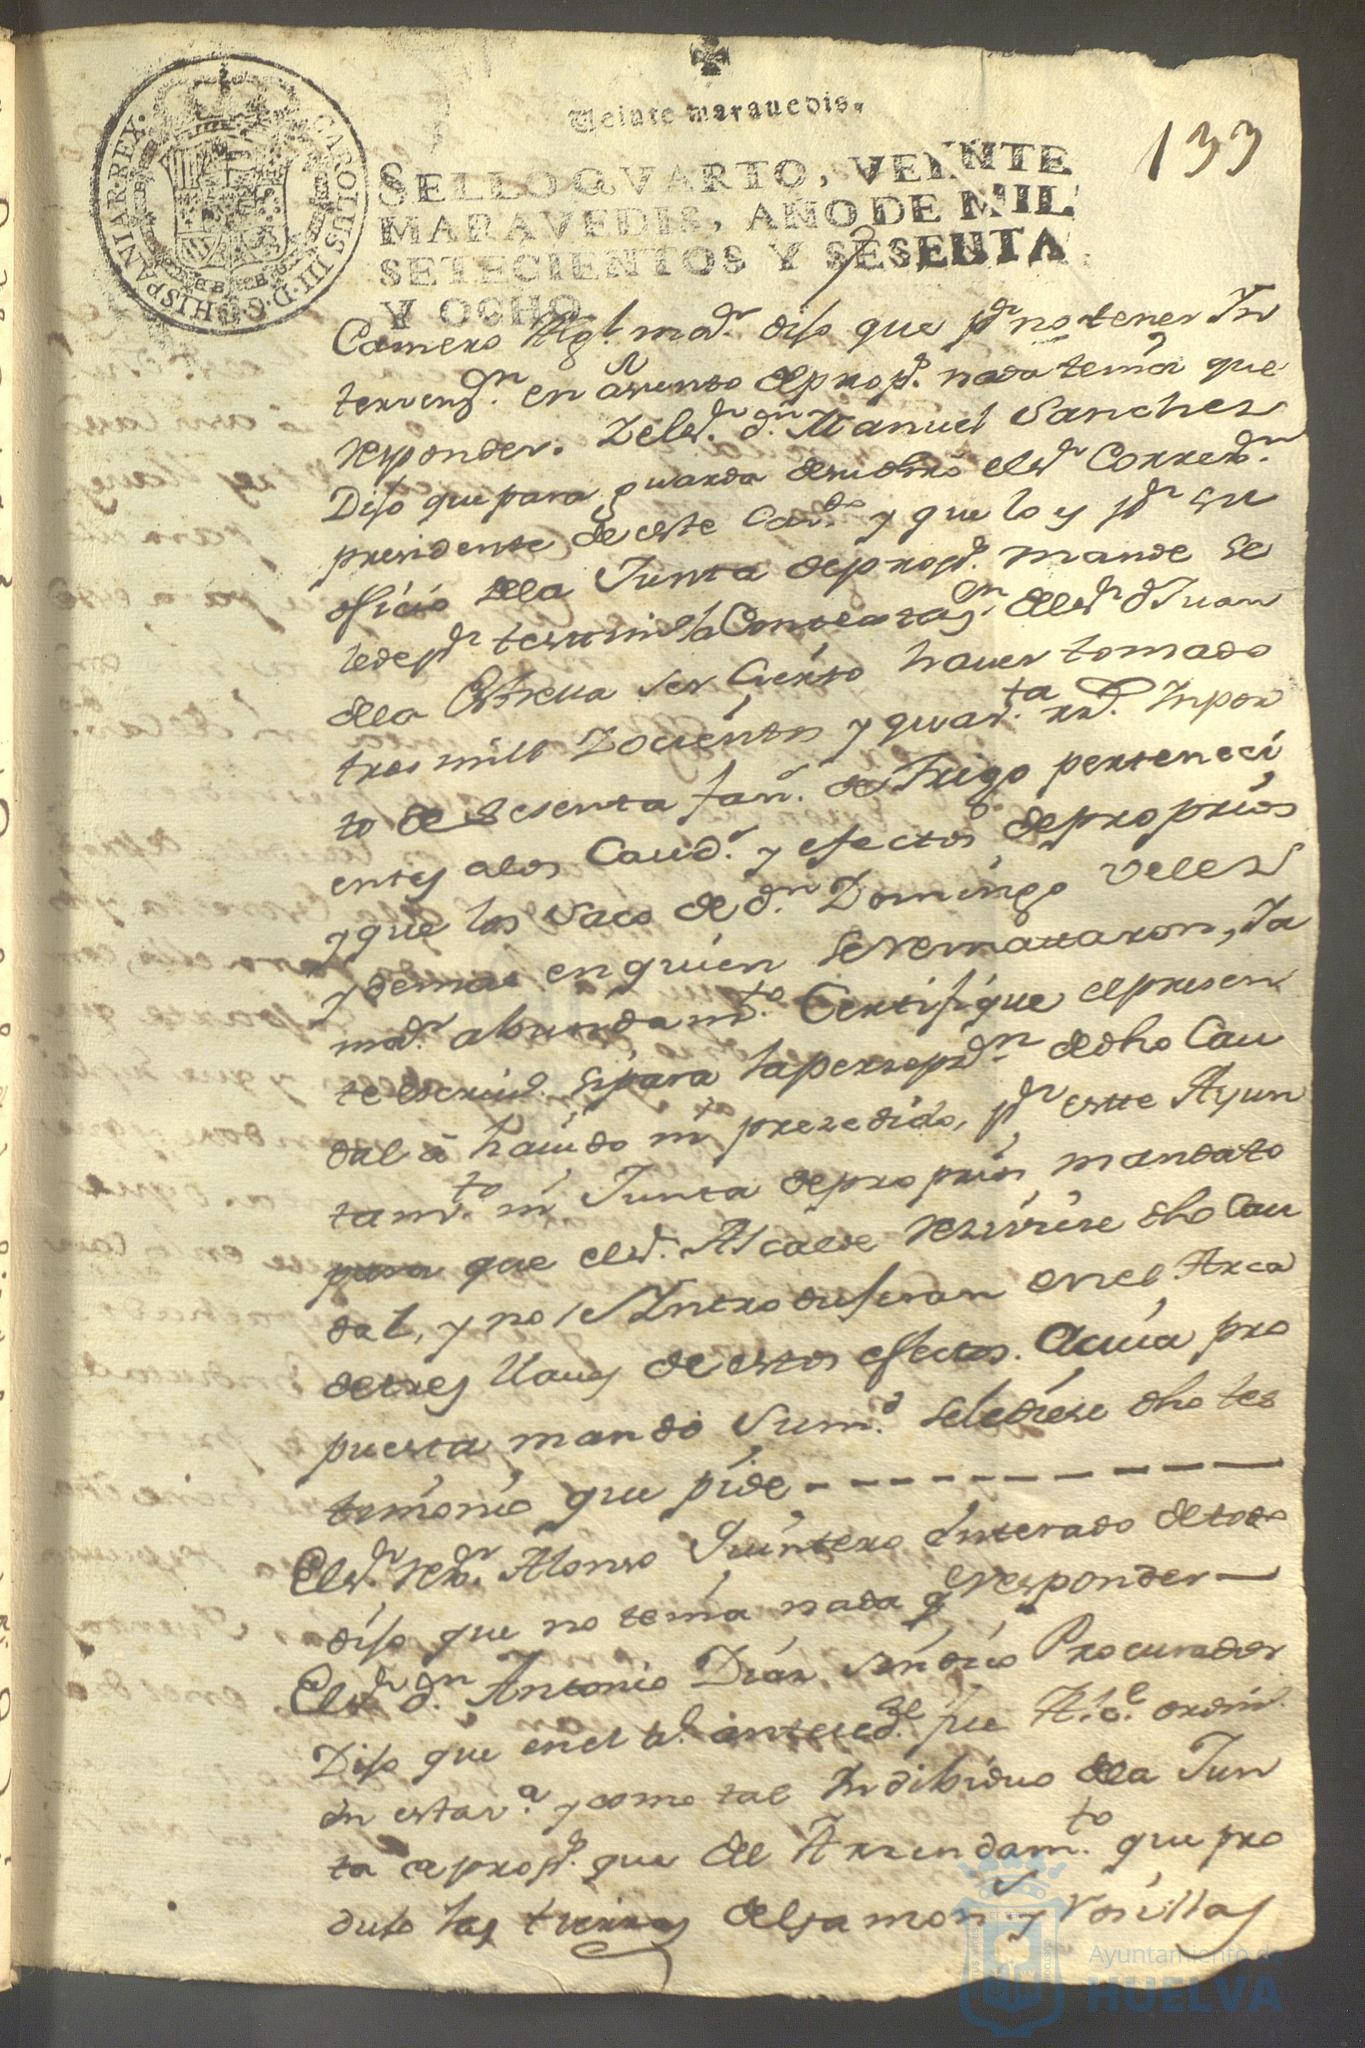 Veinte marauedis.
133
SELLO QVARTO, VEINTE
MARAVEDIS, AÑO DE MIL
SETECIENTOS Y SESENTA
Y OCHO
CAROLUS III D. G. HISPANIAR REX.
Camero Alg.l mar. dijo que pr no tener In
tervenz.n en asunto de prop.s nada tenia que
responder. Y el sr. dn. Manuel Sanchez
Dijo que para guarda de su dhro el sr Correxdr.
presidente de este Cavdo y que lo es pr su
oficio de la Junta de prop.s mande se
le de pr testimo la Contestaz.n del sr dn Juan
de la Estrella ser Cierto haver tomado
tres mill Docientos y quar.ta rrs. Impor
to de Sesenta fan.s de Trigo perteneci
entes a los Caud.s y efectos de proprios
y que los saco de dn Domingo Velez
y demas en quien se remataron, Ya
mor. abundam.to Certifique el presen
te escriuo. si para la perzepz.n de dho Cau
dal à hauido ni prezedido, pr este Ayun
tam.to ni Junta de proprios mandato
para que el sr. Alcalde reziviese dho Cau
dal, y no se Introdujeran en el Arca
de tres llaues de estos efectos. A cuia pro
puesta mandò Su m.d se le diese dho tes
timonio que pide
El sr. rexr. Alonso Quintero enterado de todo
dijo que no tenia nada q responder
El sr dn Antonio Diaz Sindico Procurador
Dijo que en el a.o anteced.te fue Al.c.e ordin.o
en esta v.a y como tal Indibiduo de la Jun
ta de prop.s que del Arrendam.to que pro
dujo las tierras del jamon y Vosillas
Ayuntamiento de
HUELVA